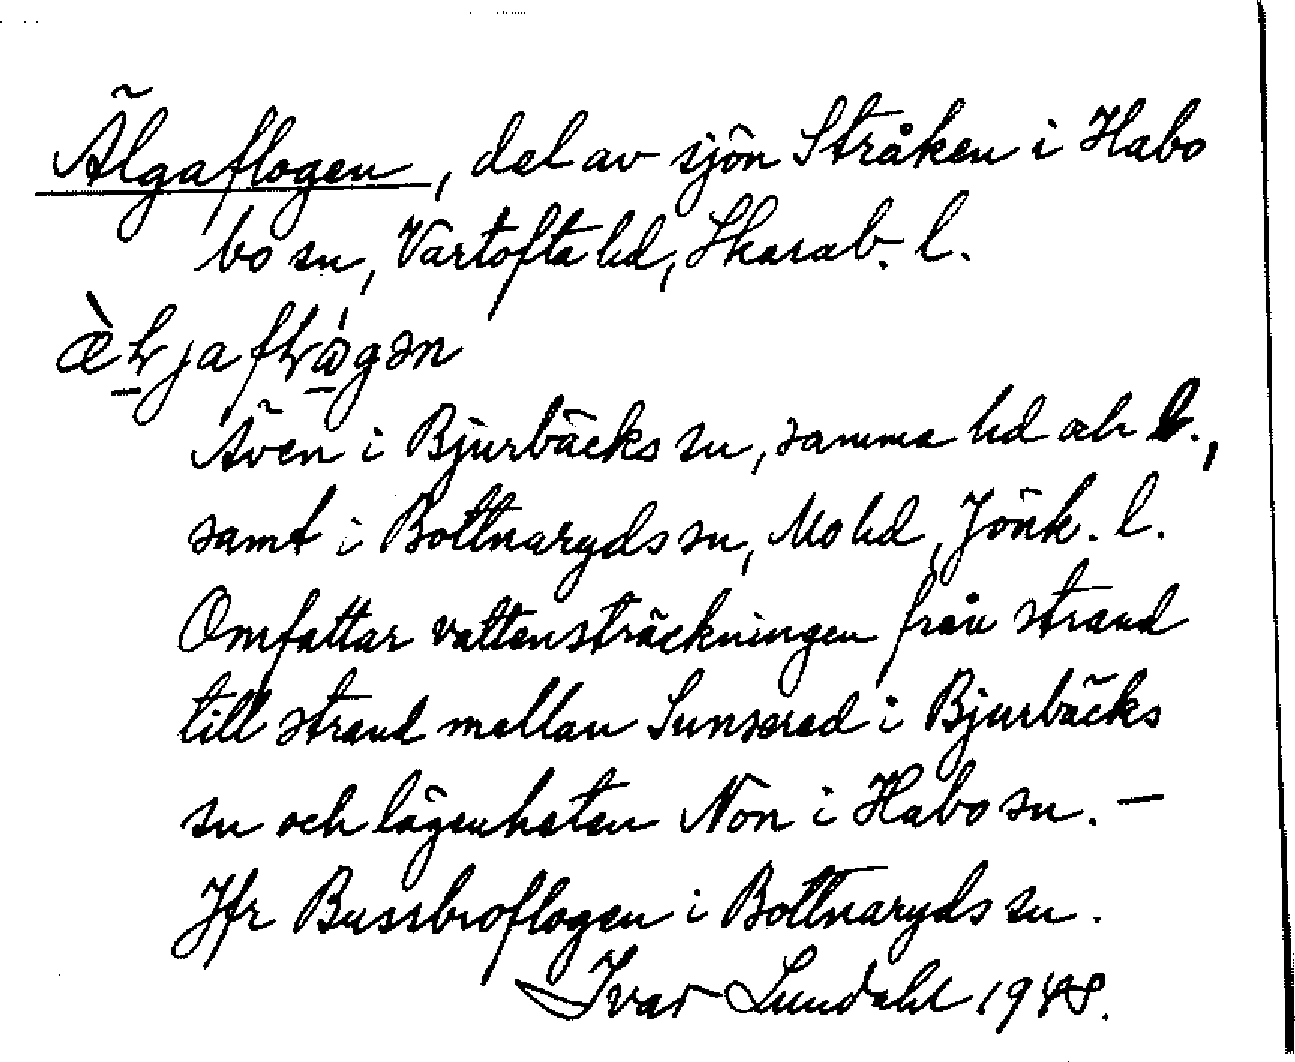 Älgaflogen, del av sjön Stråken i Habo
bo sn, Vartofta hd, Skarab. l.
Även i Bjurbäcks sn, samma hd och l.,
samt i Bottnaryds sn, Mo hd, Jönk. l.
Omfattar vattensträckningen från strand
till strand mellan Sunserad i Bjurbäcks
sn och lägenheten Non i Habo sn. —
Jfr Bussbroflogen i Bottnaryds sn.
Ivar Lundahl 1948.